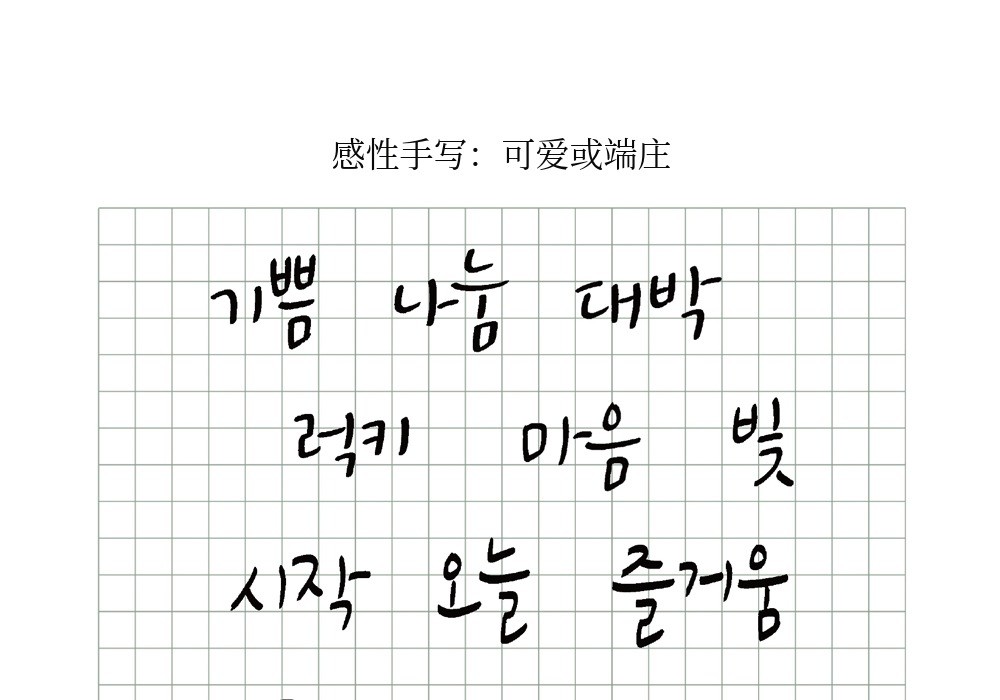 感性手写：可爱或端庄
기쁨 나눔 대박
럭키 마음 빛
시작 오늘 즐거움